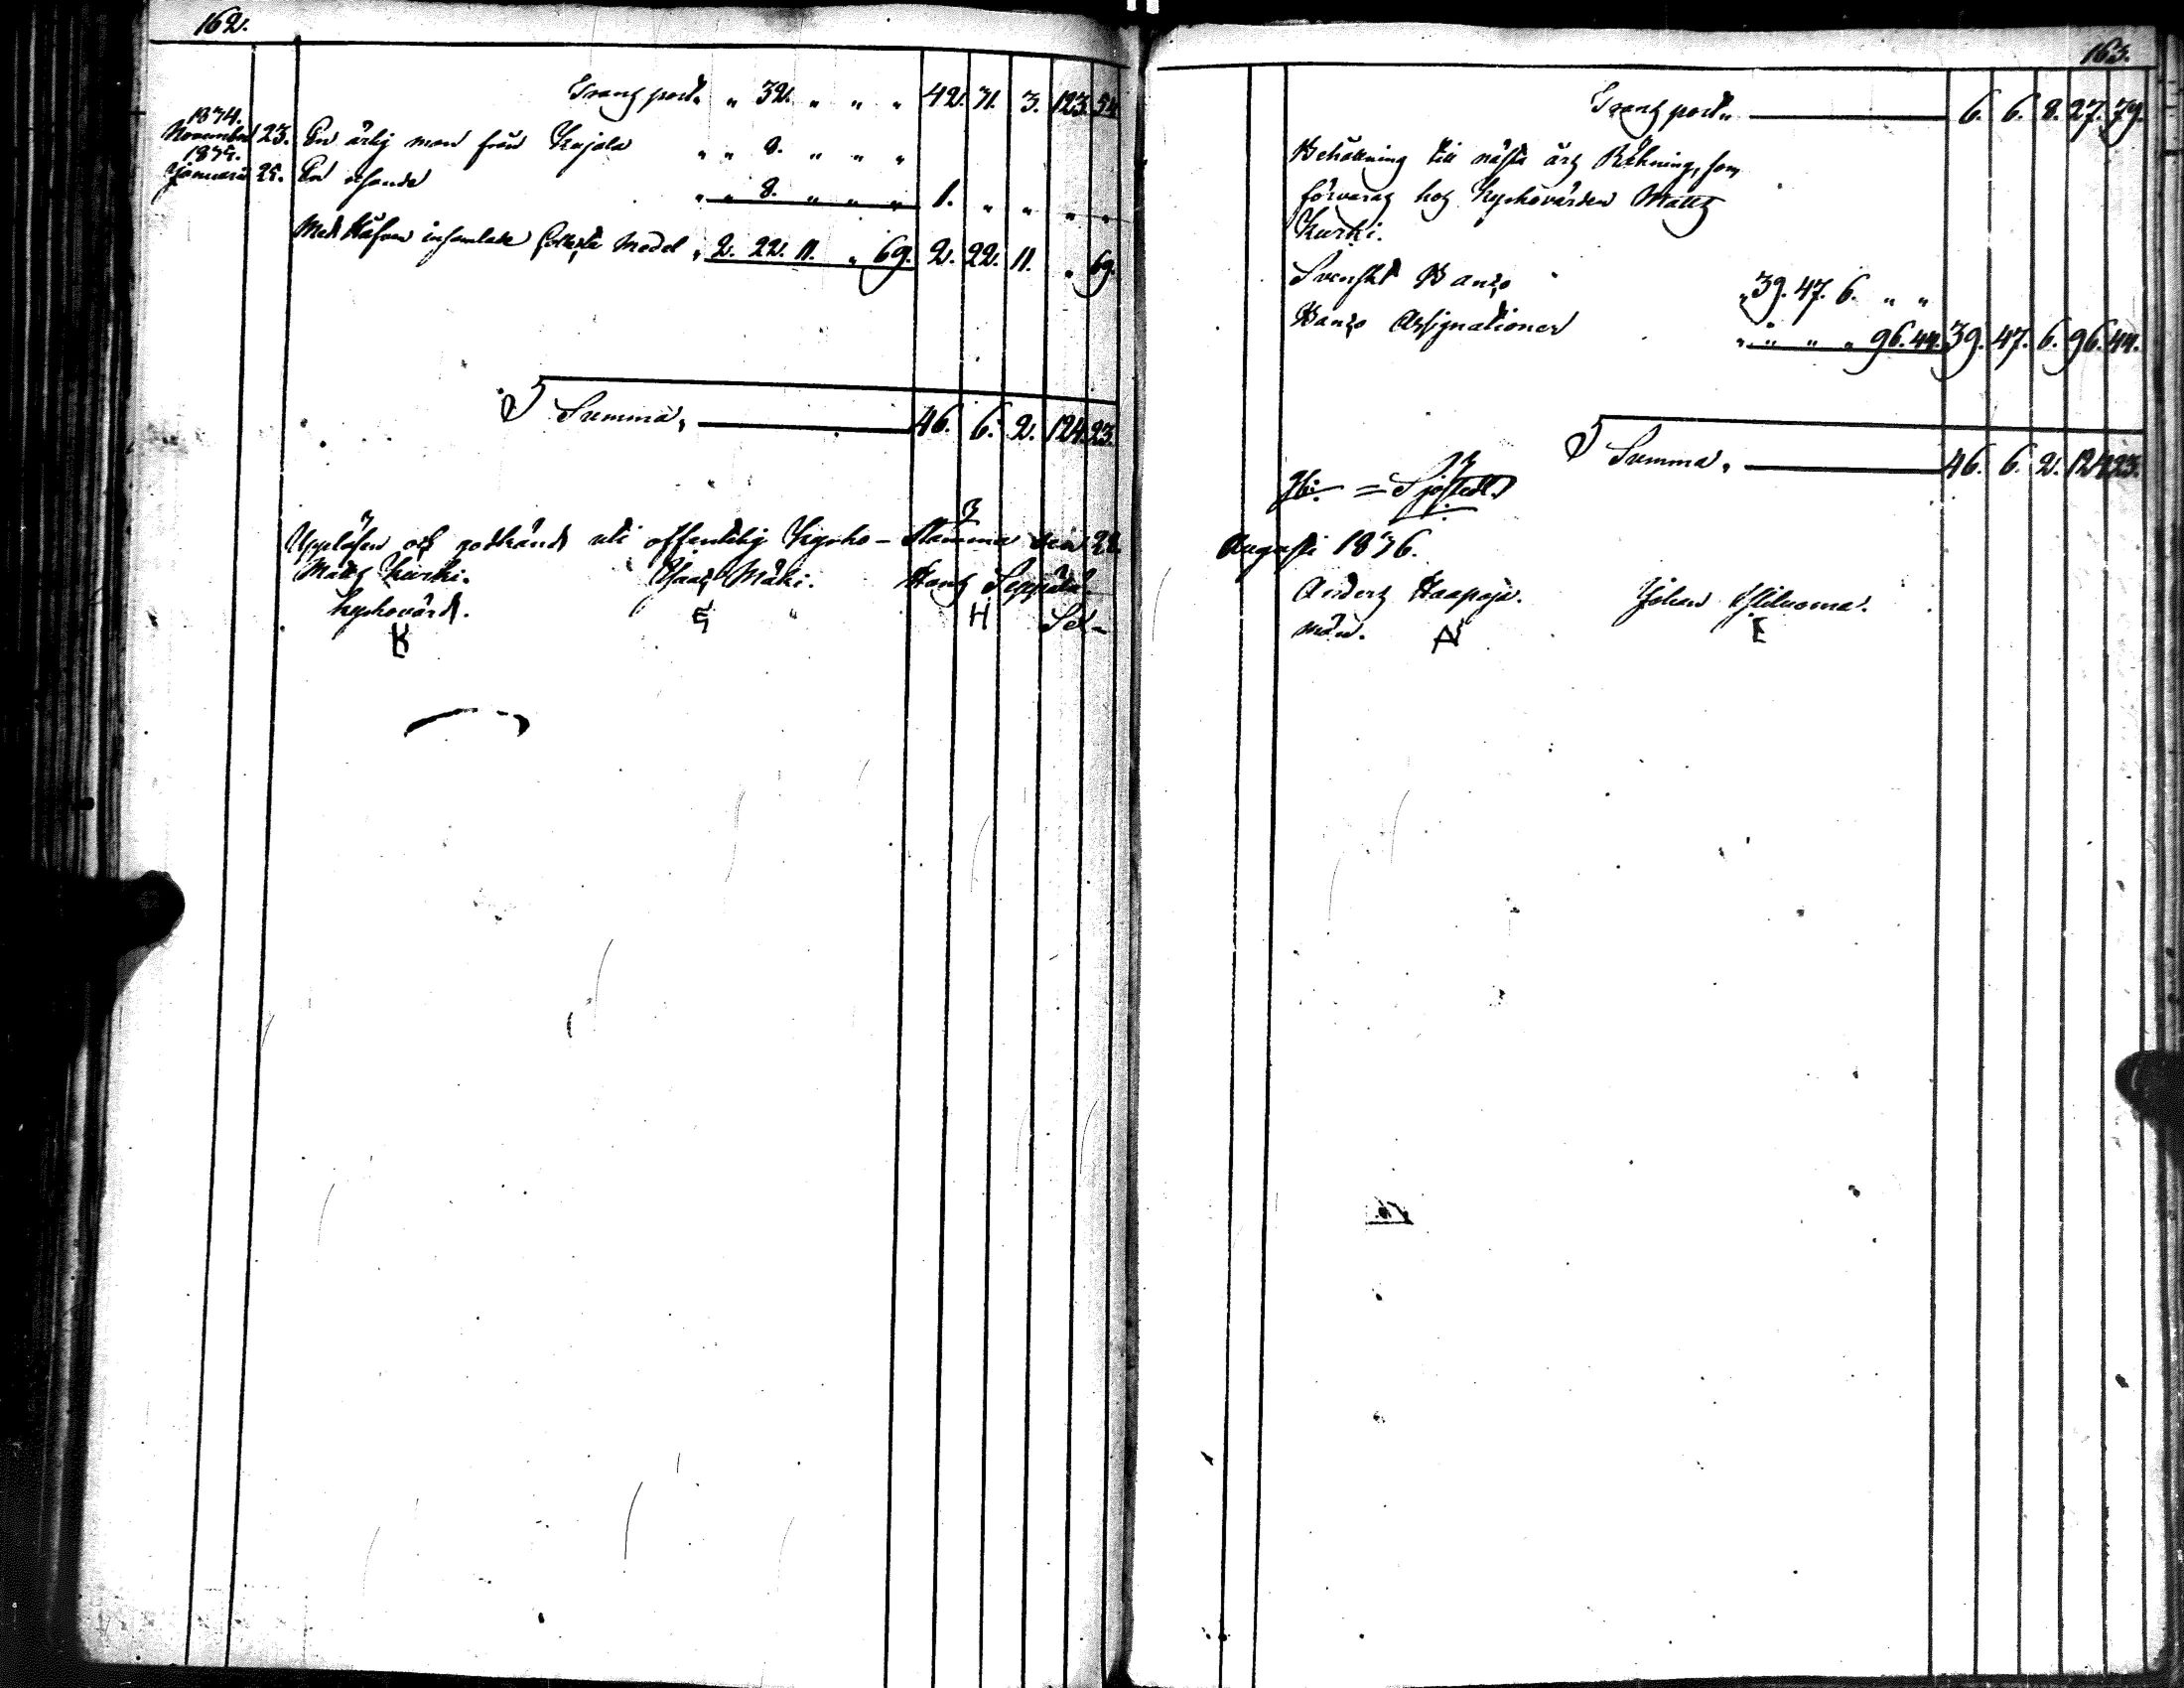 162.
Transport. " 32. " " " 42. 31. 3. 123. 54.
1834.
November 23. En ärlig man från Kujala " " 8. " " "
1835.
Januarii 25. En okände " " 8. " " " 1. " " " "
Med Håfven insamlade Collecte Medel " 2. 22. 11. " 69. 2. 22. 11. " 69.
Summa, 46. 6. 2. 124. 23.
Uppläsen och godkänd uti offentelig Kyrko-Stämma den 22.
Matts Kurki. Isaac Mäki. Hans Seppälä.
Kyrkovärd. Sex-
K H
163.
Transport. 6. 6. 8. 27. 79.
Behållning till nästa års Räkning, som
förvaras hos Kyrkovärden Matts
Kurki.
Svenskt Banco " 39. 47. 6. " "
Banco Assignationer " " " " 96. 44. 39. 47. 6. 96. 44.
Summa. 46. 6. 2. 124. 23.
Sjöstedt.
Augusti 1836.
Anders Haapoja. Johan Yliluoma.
män.